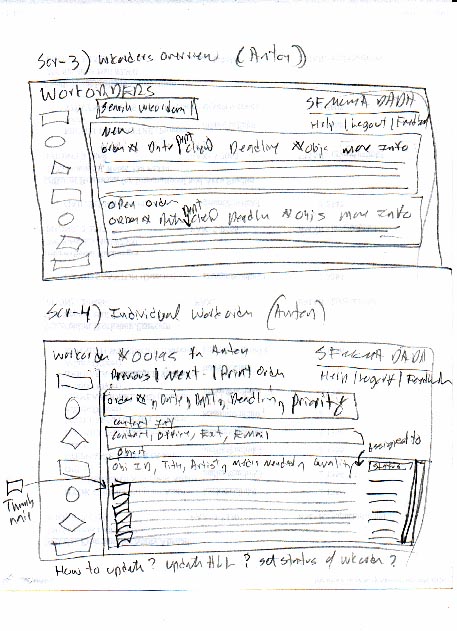 Scr-3) Workorders overview (Anton)
WORKORDERS
Search workorders
SEMEMA DADA
Help | Logout | Feedback
New
order # Date Dept Client Deadline # Objs more Info
Open order
order # Date Dept Client Deadline # Objs more Info
Scr-4) Individual workorder (Anton)
workorder # 00193 for Anton
SEMEMA DADA
Help | Logout | Feedback
Previous | Next | Print Order
order #, Date, Dept, Deadline, Priority
contact info
contact, Office, Ext, Email
assigned to
Object
Obj ID, Title, Artist, Media Needed, Quality
Status
Thumb
nail
How to update? update ALL? set status of wkorder?